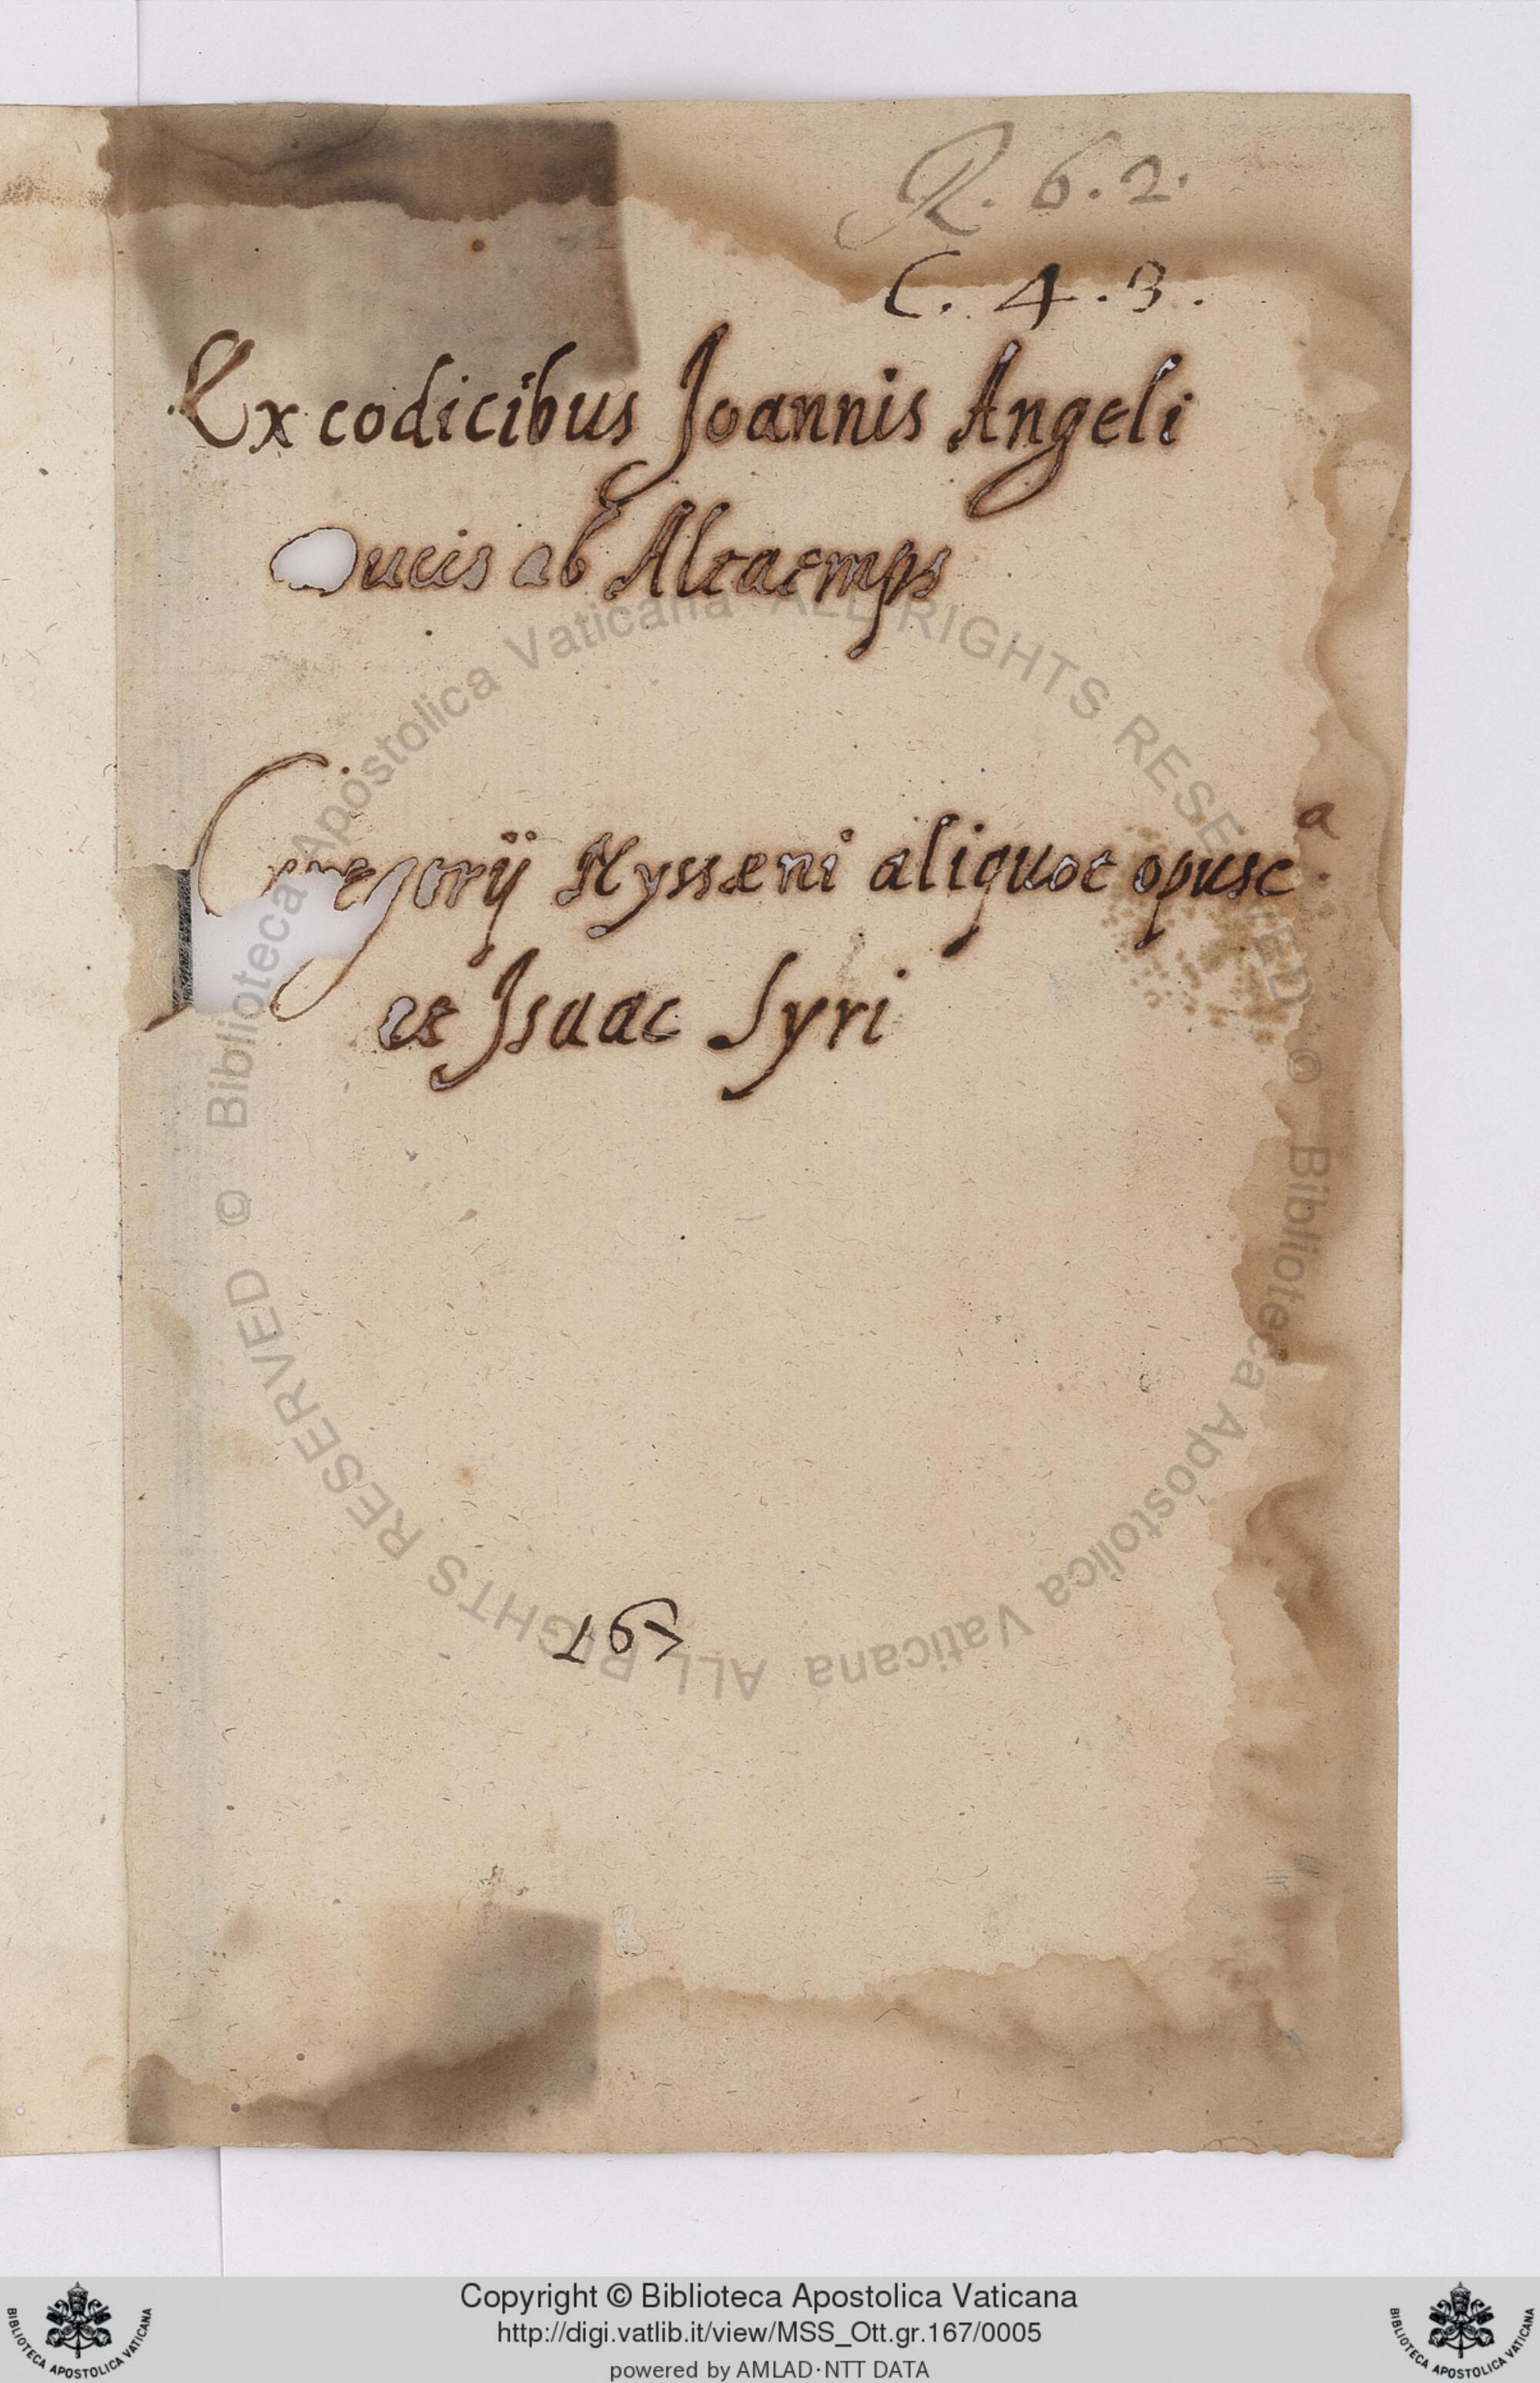 R. 6. 2.
C. 4. 3.
Ex codicibus Joannis Angeli
Ducis ab Altaemps
Gregorij Nysseni aliquot opusc.a
et Isaac Syri
167
© Biblioteca Apostolica Vaticana ALL RIGHTS RESERVED © Biblioteca Apostolica Vaticana ALL RIGHTS RESERVED
Copyright © Biblioteca Apostolica Vaticana
http://digi.vatlib.it/view/MSS_Ott.gr.167/0005
powered by AMLAD·NTT DATA
BIBLIOTECA APOSTOLICA VATICANA
BIBLIOTECA APOSTOLICA VATICANA